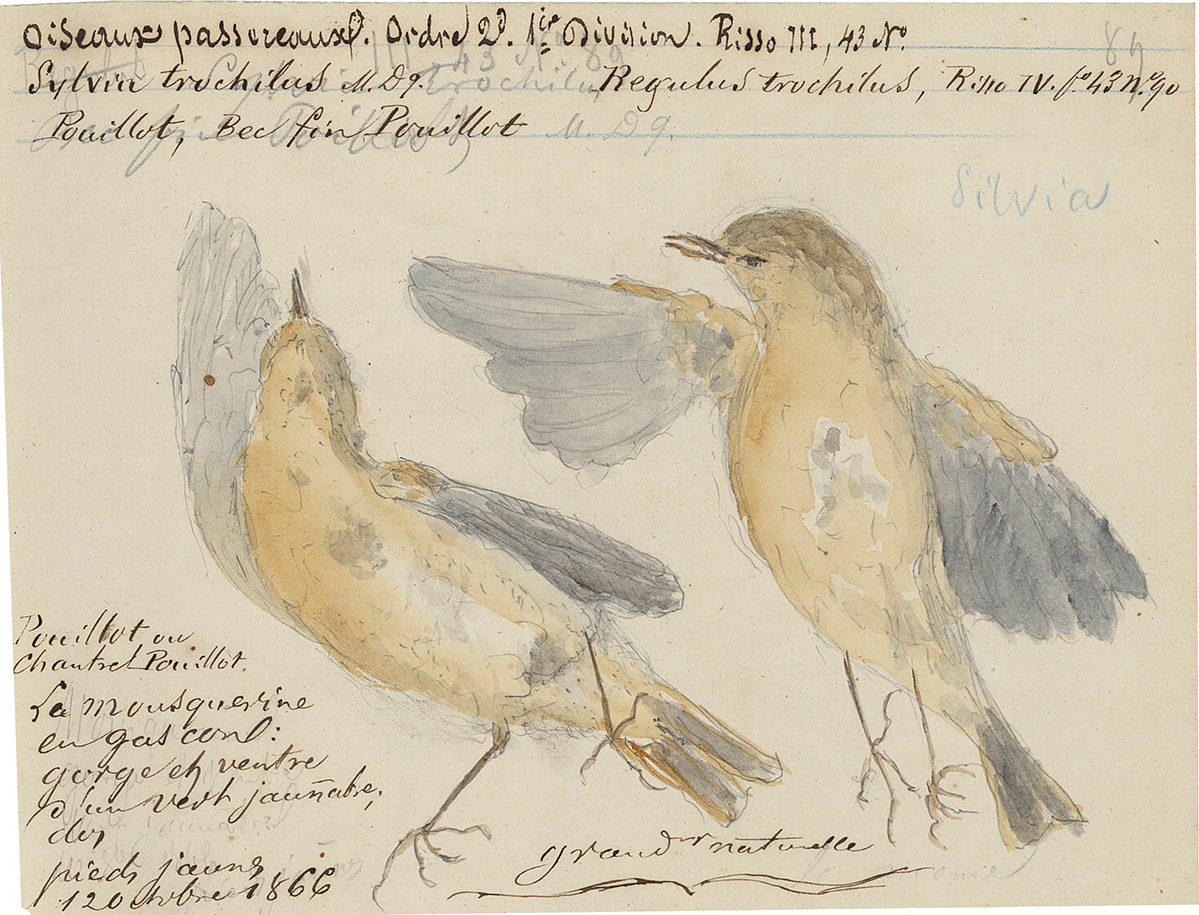 Oiseaux passereaux. Ordre 2d. 1ire Division. Risso III, 43 No.
84
Sylvia trochilus M. D 9.
Regulus trochilus, Risso IV. fo 43 no. 90
Pouillot, Bec fin Pouillot
M. D 9.
Silvia
Pouillot ou
Chantre Pouillot.
La mousquerine
en gascon:
gorge et ventre
d'un vert jaunatre,
des
pieds jauns
12 Octobre 1866
grandr naturelle